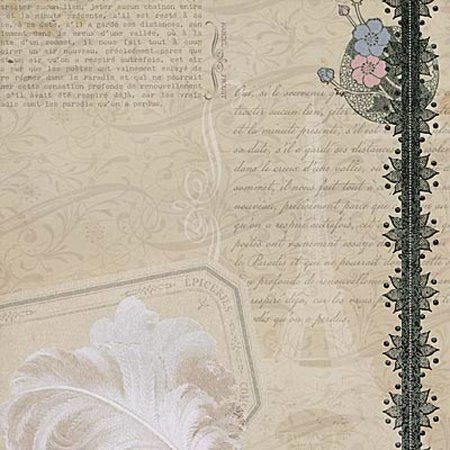 traster sucun lien, jeter aucun chaînon entre
et la minute présente, s'il est resté à sa
e, à sa date, s'il a gardé ses distances, son
lement dans le creux d'une vallée, où à la
nte d'un sommet, il nous fait tout à coup
pirer un air nouveau, précisément parce que
un air qu'on a respiré autrefois, cet air
ur que les poètes ont vainement essayé de
re régner dans le Paradis et qui ne pourrait
ner cette sensation profonde de renouvellement
s'il avait été respiré déjà, car les vrais
dis sont les paradis qu'on a perdus.
Oui, si le souvenir
tracter aucun lien, jeter
et la minute présente, s'il est
sa date, s'il a gardé ses distances
dans le creux d'une vallée, ou
sommet, il nous fait tout à c
nouveau, précisément parce que
qu'on a respiré autrefois, cet
poètes ont vainement essayé
le Paradis et qui ne pourrait do
profonde de renouvellement
respiré déjà, car les vrais
dis qu'on a perdus.
EPICERIES